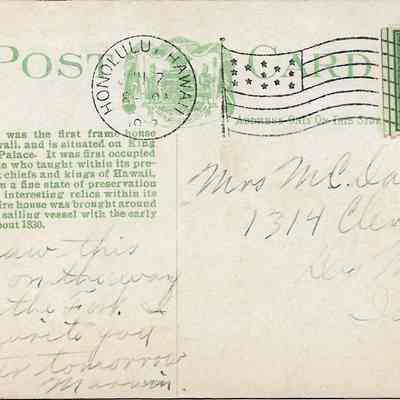 POST CARD
HONOLULU, HAWAII
ADDRESS ONLY ON THIS SIDE
was the first frame house
waii, and is situated on King
Palace. It was first occupied
le who taught within its pre-
t chiefs and kings of Hawaii,
n a fine state of preservation
interesting relics within its
ire house was brought around
sailing vessel with the early
bout 1830.
saw this
on the way
the Park. I
write you
tomorrow
Marvin.
Mrs M.C. Da
1314 Clev
Des M